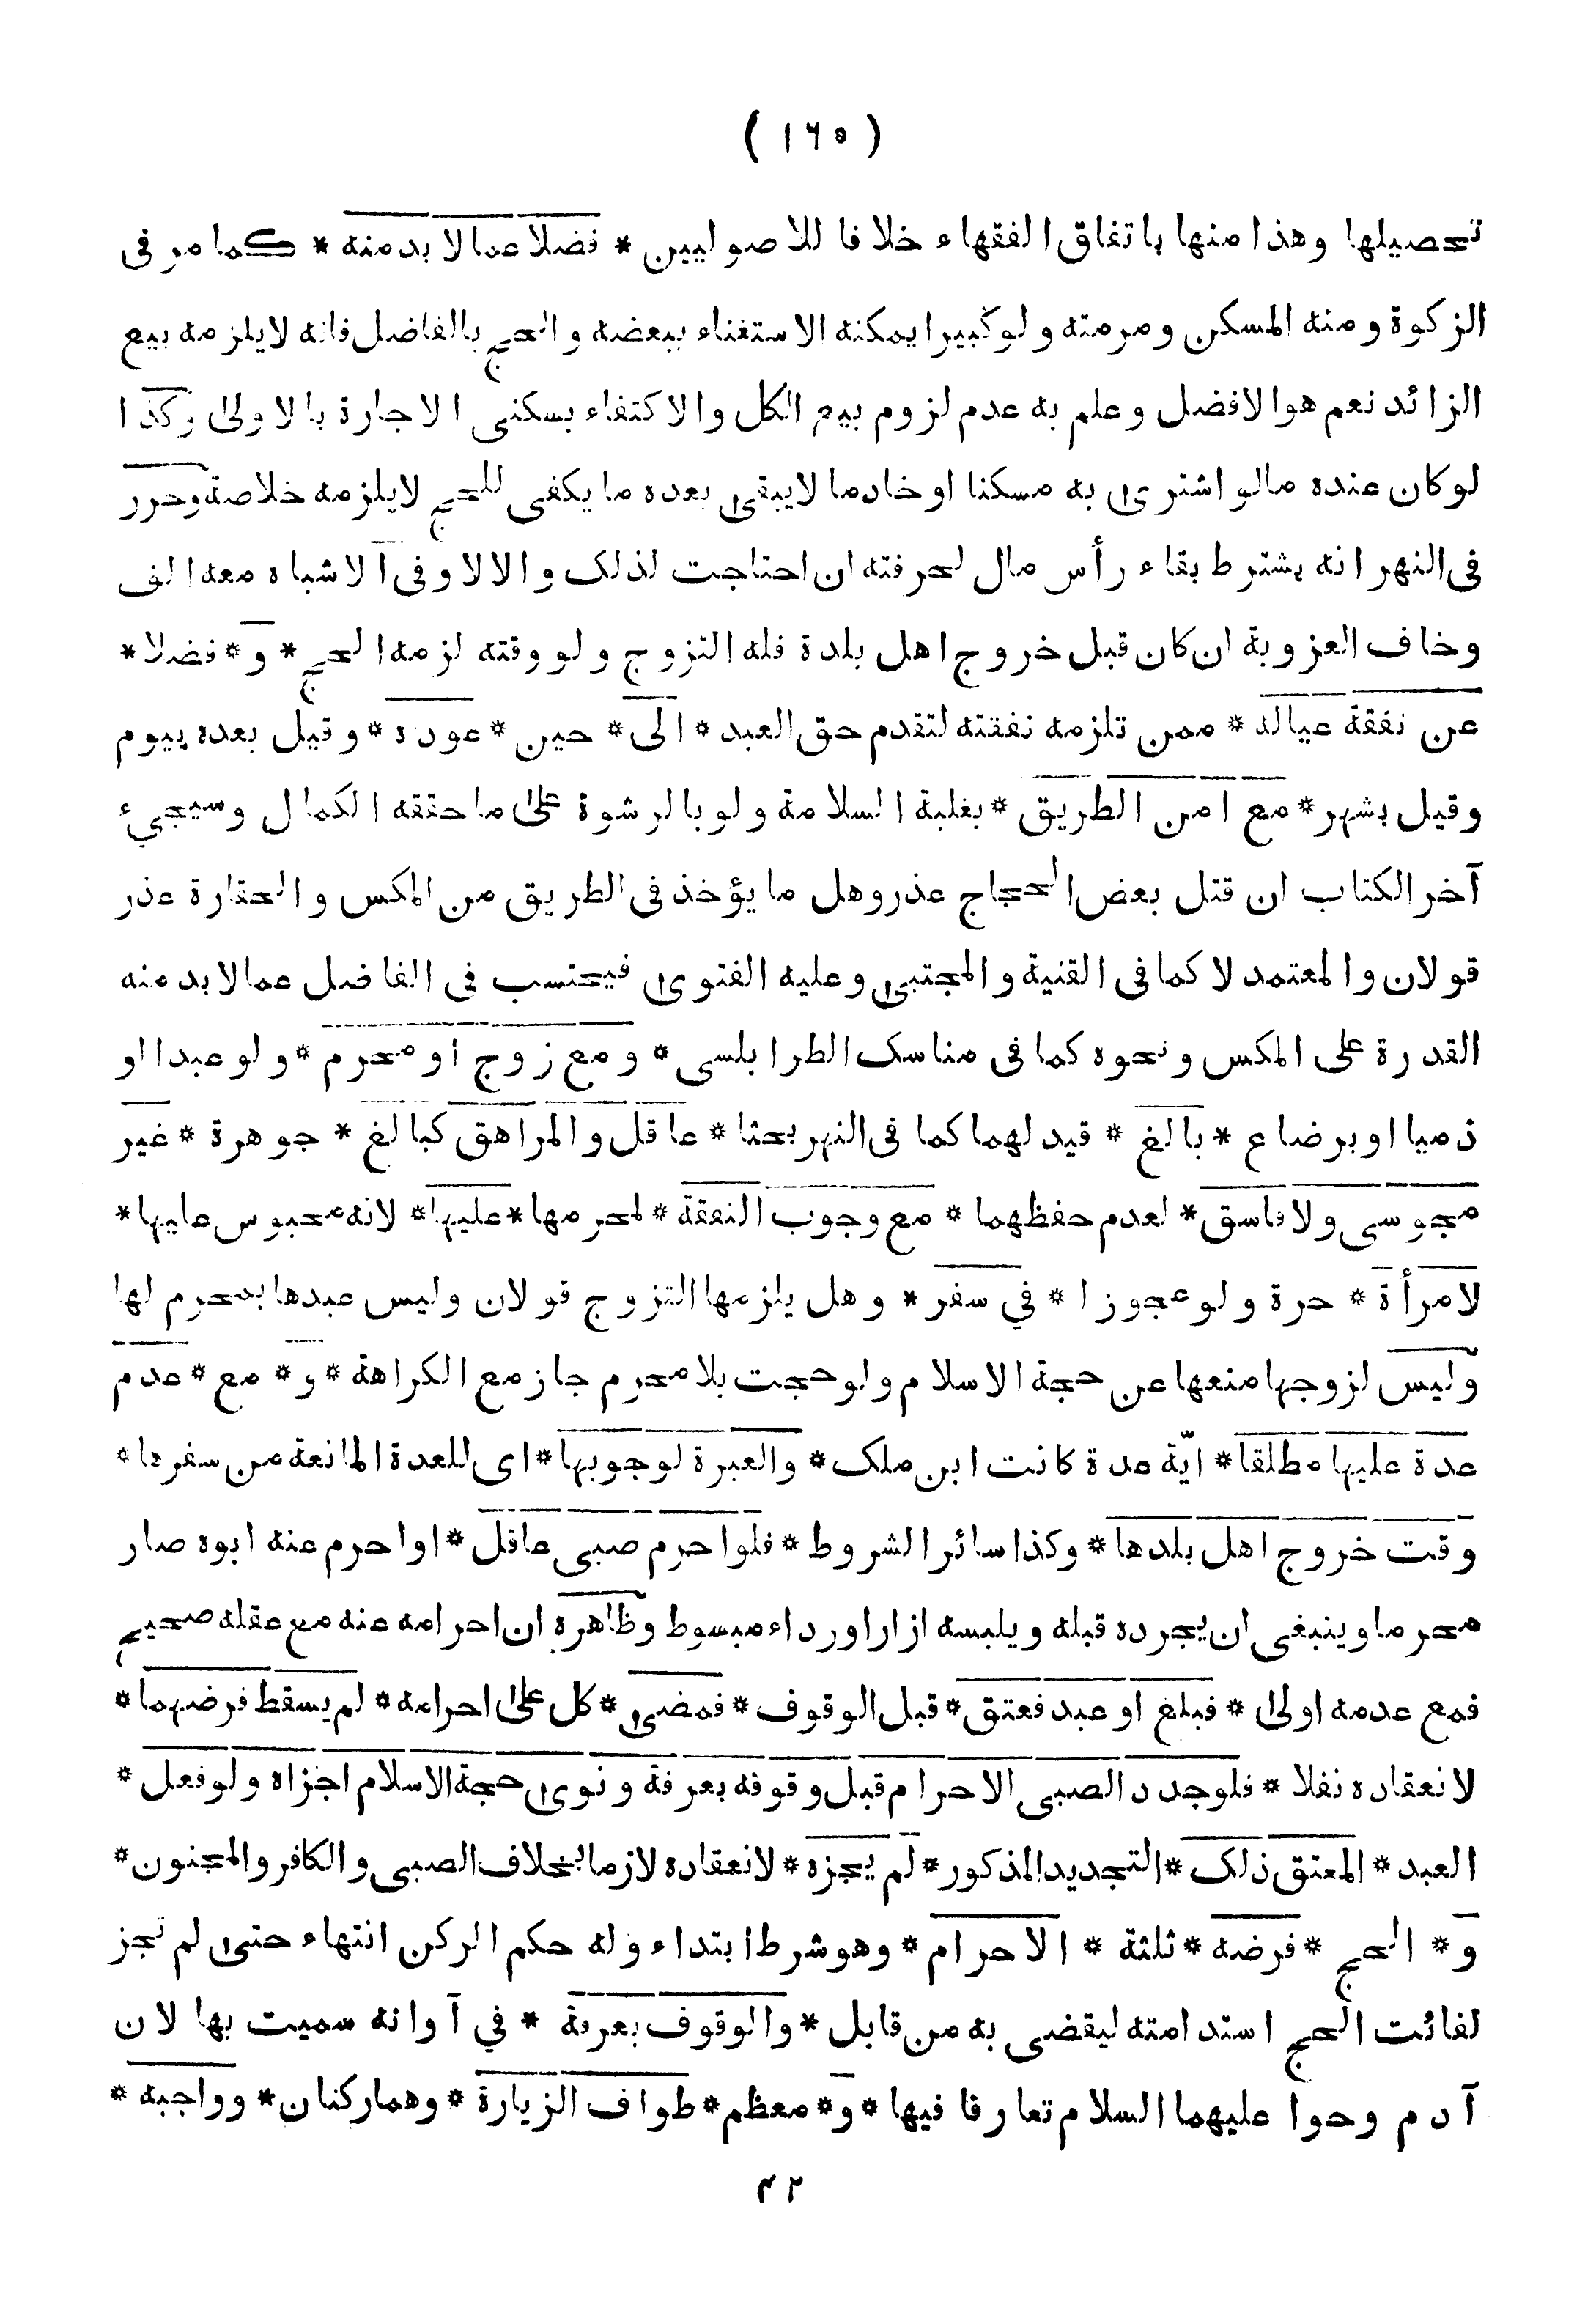 ( ١٦٥ )
تحصيلها وهذا منها باتفاق الفقهاء خلافا للاصوليين * فضلا عما لا بد منه * كما مر فى
الزكوة ومنه المسكن ومرمته ولو كبيرا يمكنه الاستغناء ببعضه والحج بالفاضل فانه لا يلزمه بيع
الزائد نعم هو الافضل وعلم به عدم لزوم بيع الكل والاكتفاء بسكنى الاجارة بالاولى وكذا
لو كان عنده ما لو اشترى به مسكنا او خادما لا يبقى بعده ما يكفى للحج لا يلزمه خلاصة وحرر
فى النهر انه يشترط بقاء رأس مال لحرفته ان احتاجت لذلك والا لا وفى الاشباه معه الف
وخاف العزوبة ان كان قبل خروج اهل بلدة فله التزوج ولو وقته لزمه الحج * و * فضلا *
عن نفقة عياله * ممن تلزمه نفقته لتقدم حق العبد * الى * حين * عوده * وقيل بعده بيوم
وقيل بشهر * مع امن الطريق * بغلبة السلامة ولو بالرشوة على ما حققه الكمال وسيجىء
آخر الكتاب ان قتل بعض الحجاج عذر وهل ما يؤخذ فى الطريق من المكس والحقارة عذر
قولان والمعتمد لا كما فى القنية والمجتبى وعليه الفتوى فيحتسب فى الفاضل عما لا بد منه
القدرة على المكس ونحوه كما فى مناسك الطرابلسى * ومع زوج او محرم * ولو عبدا او
ذميا او برضاع * بالغ * قيد لهما كما فى النهر بحثا * عاقل والمراهق كبالغ * جوهرة * غير
مجوسى ولا فاسق * لعدم حفظهما * مع وجوب النفقة * لمحرمها * عليها * لانه محبوس عليها *
لامرأة * حرة ولو عجوزا * في سفر * وهل يلزمها التزوج قولان وليس عبدها بمحرم لها
وليس لزوجها منعها عن حجة الاسلام ولو حجت بلا محرم جاز مع الكراهة * و * مع * عدم
عدة عليها مطلقا * ايّة عدة كانت ابن ملك * والعبرة لوجوبها * اى للعدة المانعة من سفرها *
وقت خروج اهل بلدها * وكذا سائر الشروط * فلو احرم صبى عاقل * او احرم عنه ابوه صار
محرما وينبغى ان يجرده قبله ويلبسه ازارا ورداء مبسوط وظاهره ان احرامه عنه مع عقله صحيح
فمع عدمه اولى * فبلغ او عبد فعتق * قبل الوقوف * فمضى * كل على احرامه * لم يسقط فرضهما *
لانعقاده نفلا * فلو جدد الصبى الاحرام قبل وقوفه بعرفة ونوى حجة الاسلام اجزاه ولو فعل *
العبد * المعتق ذلك * التجديد المذكور * لم يجزه * لانعقاده لازما بخلاف الصبى والكافر والمجنون *
و * الحج * فرضه * ثلثة * الاحرام * وهو شرط ابتداء وله حكم الركن انتهاء حتى لم تجز
لفائت الحج استدامته ليقضى به من قابل * والوقوف بعرفة * في آوانه سميت بها لان
آدم وحوا عليهما السلام تعارفا فيها * و * معظم * طواف الزيارة * وهما ركنان * وواجبه *
٤٢